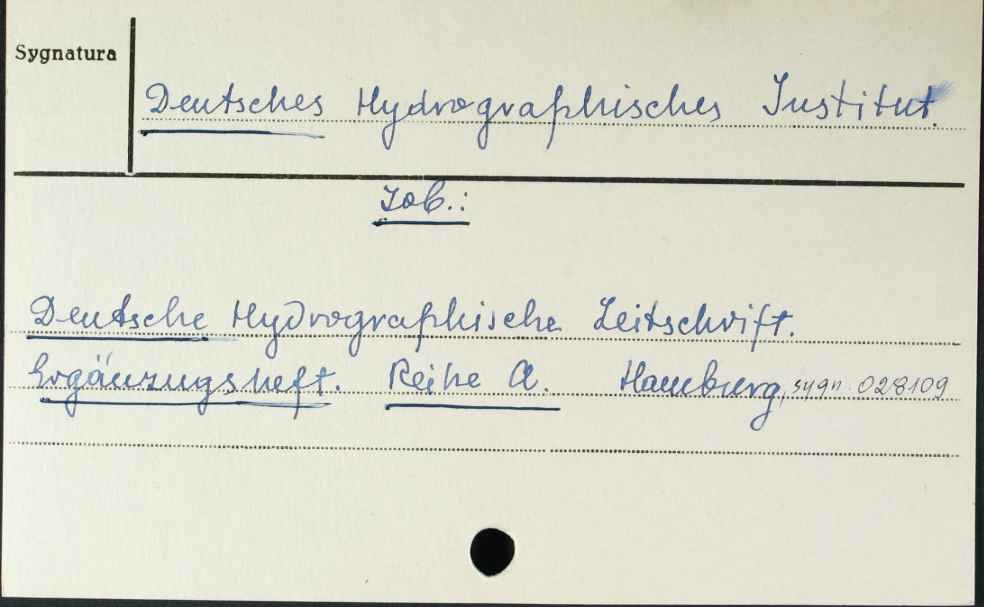 Sygnatura
Deutsches Hydrographisches Institut.
Zob.:
Deutsche Hydrographische Zeitschrift.
Ergänzungsheft. Reihe A. Hamburg, sygn. 028109